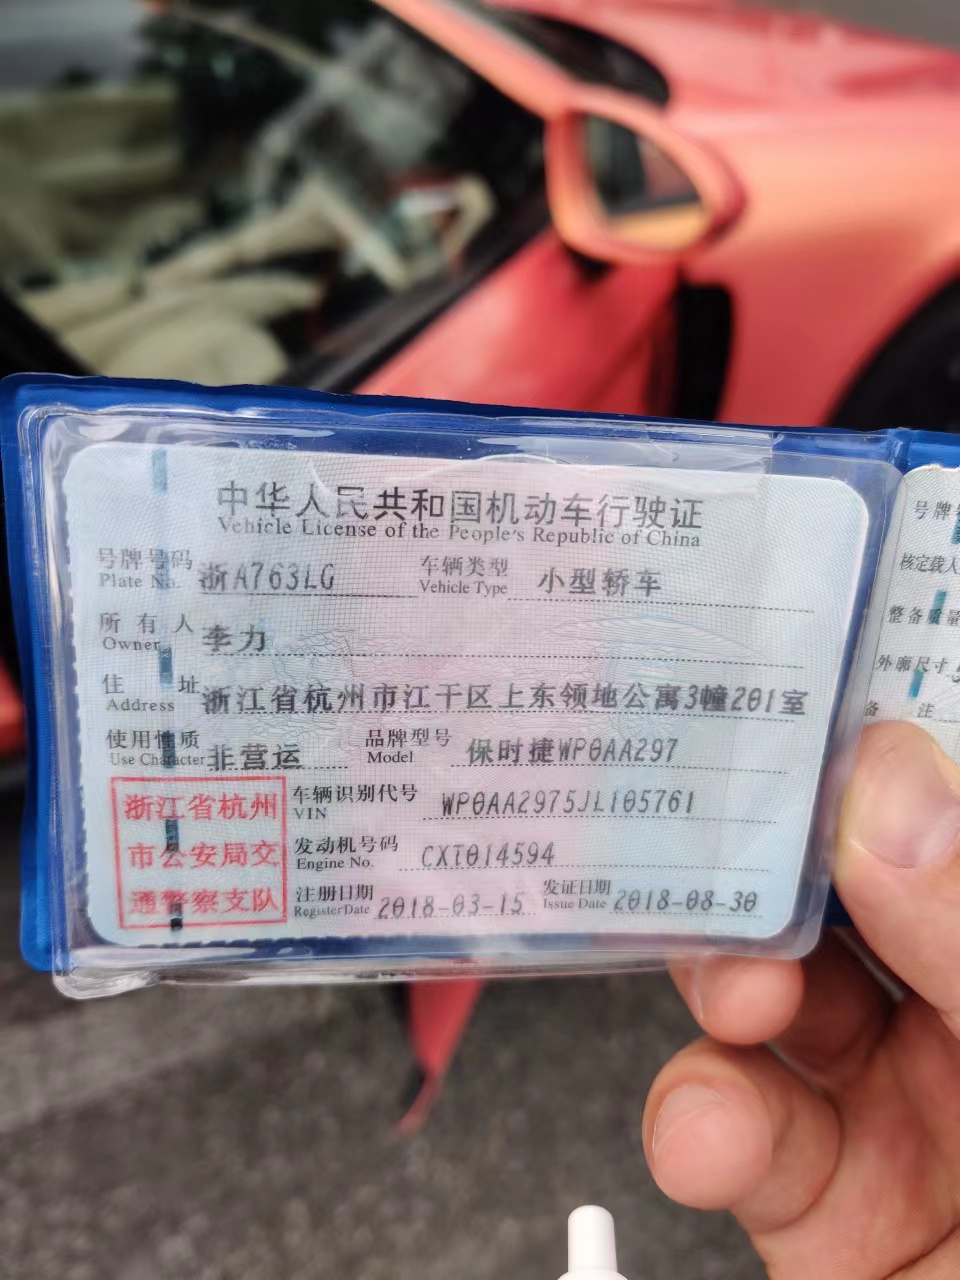 中华人民共和国机动车行驶证
Vehicle License of the People's Republic of China
号牌号码 浙A763LG 车辆类型 小型轿车
Plate No. Vehicle Type
所有人 李力
Owner
住址 浙江省杭州市江干区上东领地公寓3幢201室
Address
使用性质 非营运 品牌型号 保时捷WP0AA297
Use Character Model
浙江省杭州
市公安局交
通警察支队
车辆识别代号 WP0AA2975JL105761
VIN
发动机号码 CXT014594
Engine No.
注册日期 2018-03-15 发证日期 2018-08-30
Register Date Issue Date
号牌
核定载人
整备质量
外廓尺寸
备注